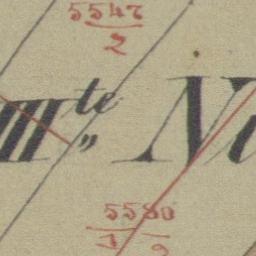 5547
2
IIIte Ni
5580
1 2